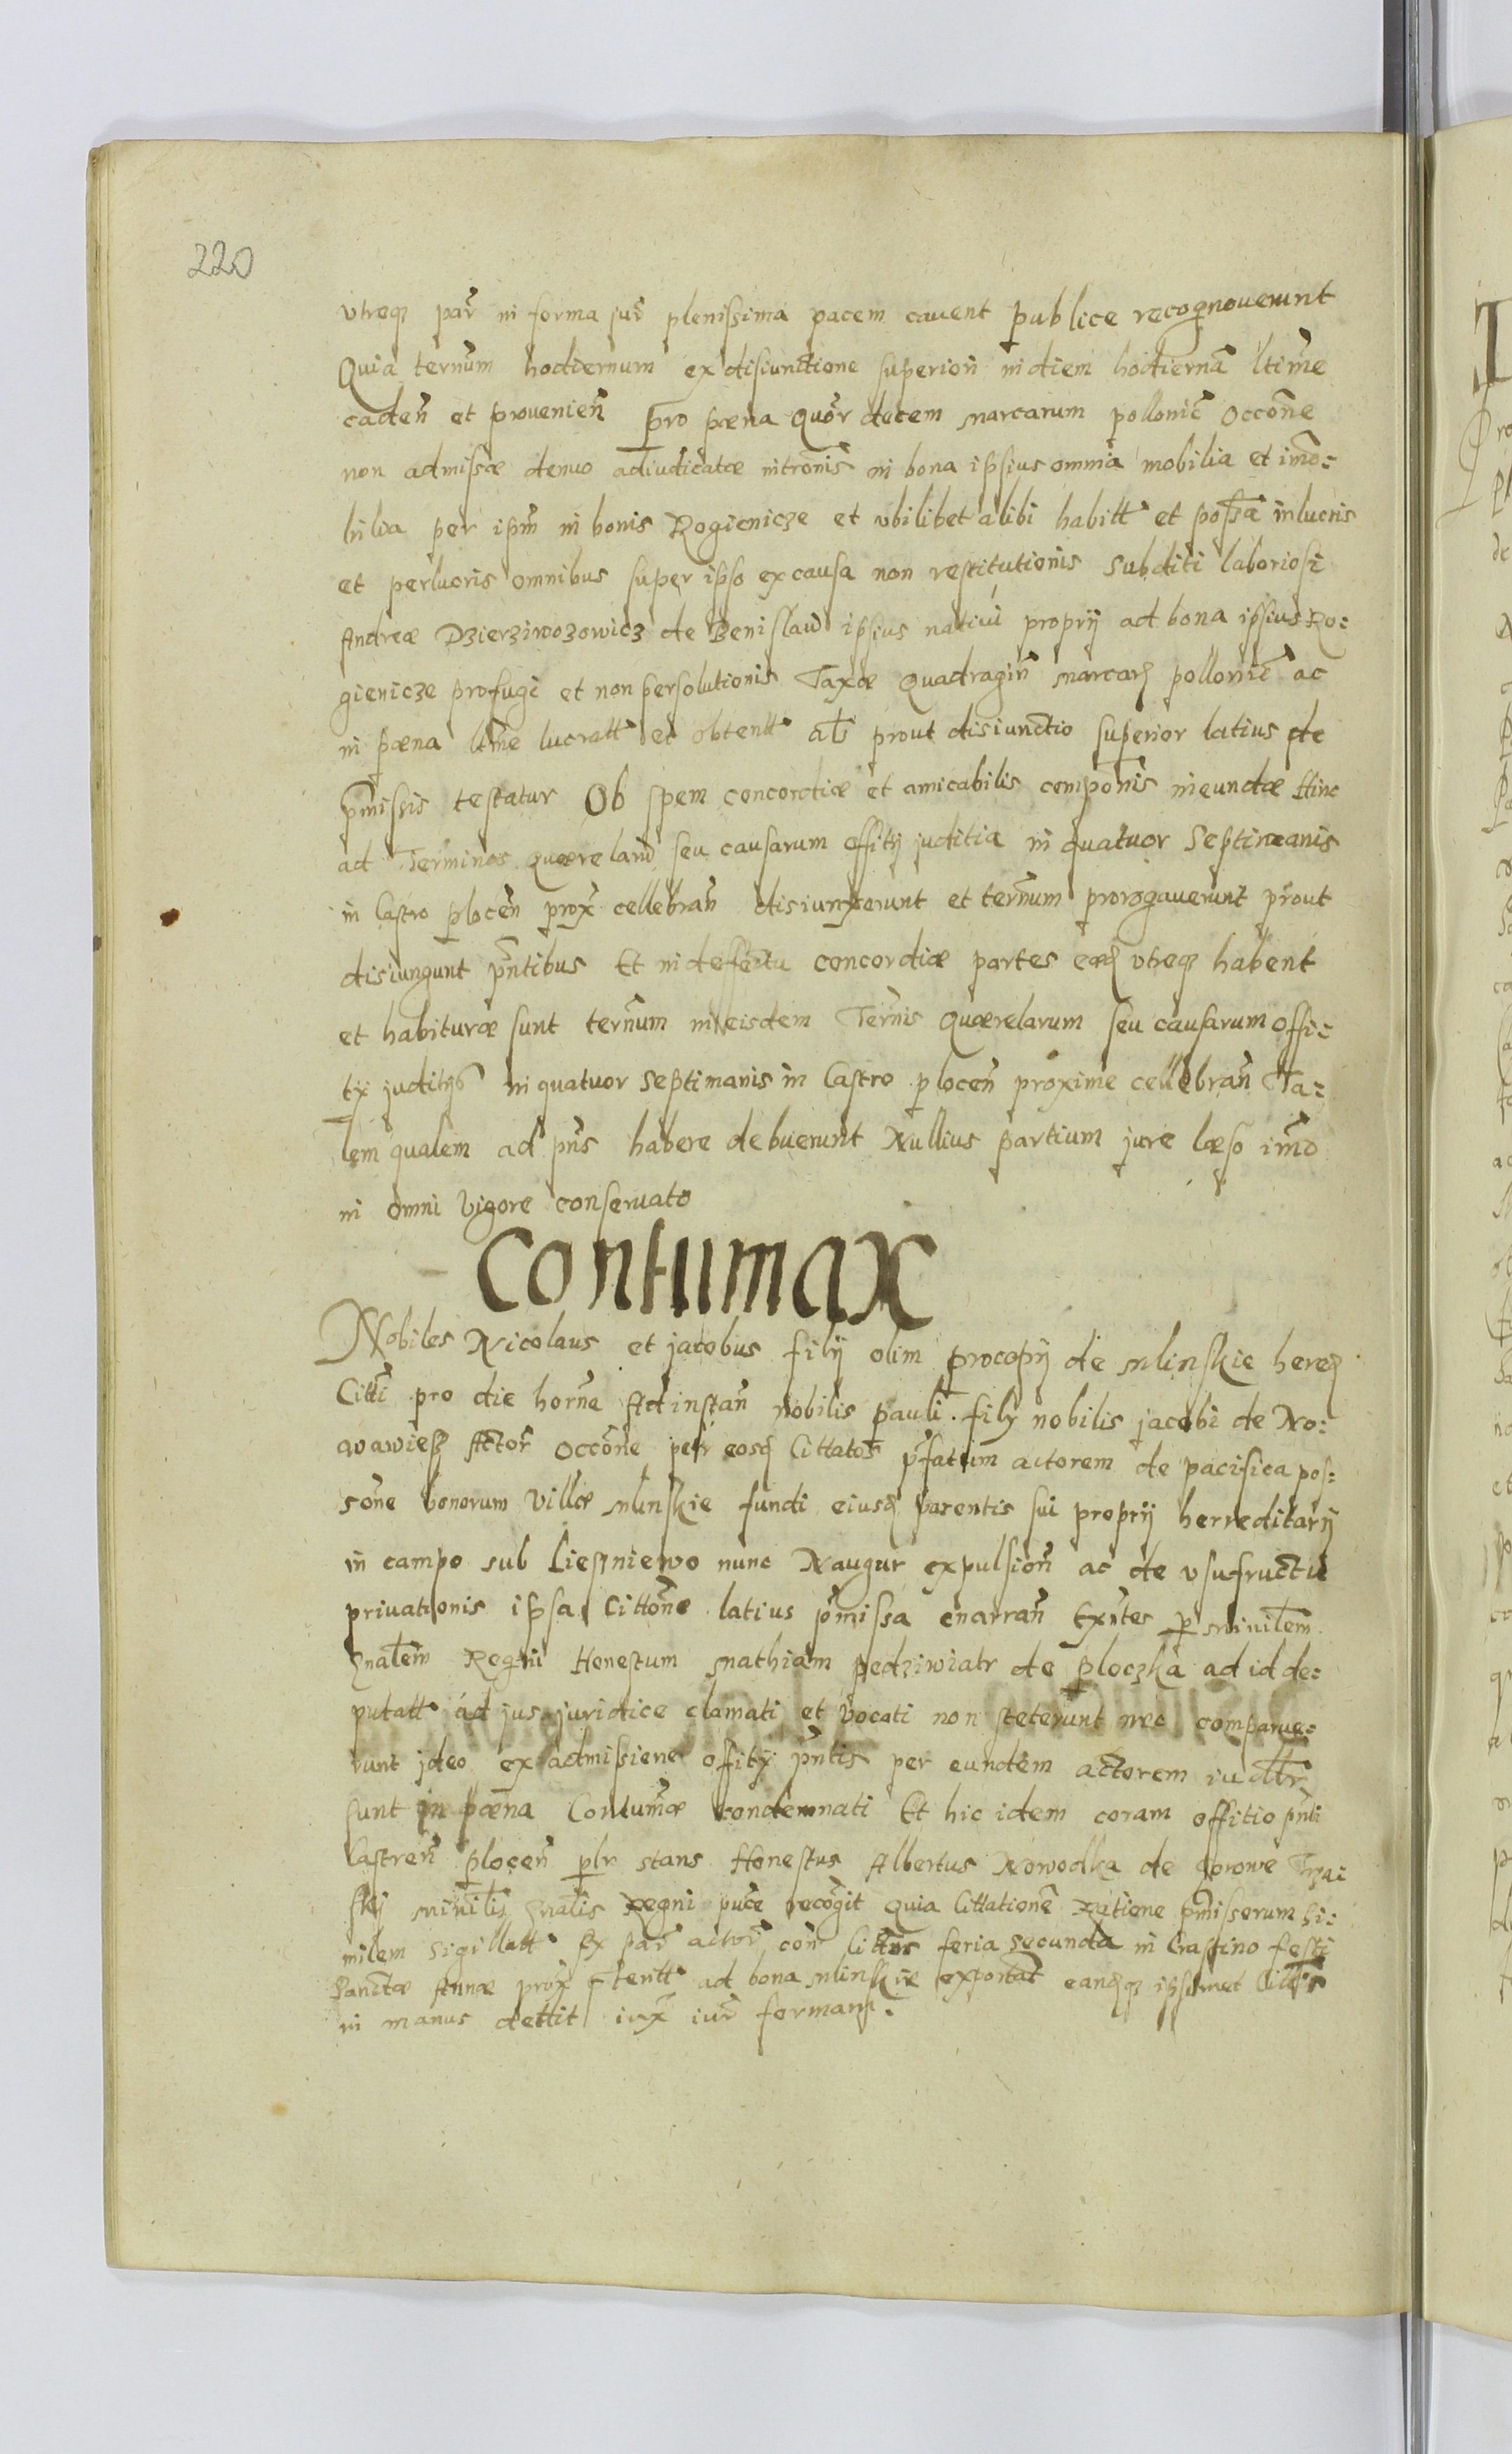 220
vtreqz par̃ in forma jur̃ plenissima pacem cauent publice recognouerunt
Quia terñum hodiernum ex disiunctione superiori in diem hodiernã ltime
cadeñ et prouenieñ pro pæna quõr decem marcarum pollonic̃ Occõne
non admissæ denuo adiudicatæ intromis̃ in bona ipsius omnia mobilia et imõ=
bilia per ipm̃ in bonis Rogienicze et vbilibet alibi habitt et possã in lucris
et perlucris omnibus super ipso ex causa non restitutionis subditi laboriosi
Andreæ Dzierziwozowicz de Benislaw ipsius natiui proprij ad bona ipsius Ro=
gienicze profugi et non persolutionis Taxæ Quadragiñ marcarz pollonic̃ ac
in pæna ltime lucratt et obtentt als̃ prout disiunctio superior latius de
pr̃missis testatur Ob spem concordiæ et amicabilis componis̃ ineundæ Hinc
ad Terminos quærelarũ seu causarum offitij juditia in quatuor Septimanis
in Castro ploceñ prox̃ cellebrañ disiunxerunt et terñum prorogauerunt prout
disiungunt pñtibus Et in deffectu concordiæ partes eædz vtreqz habent
et habituræ sunt terñum in eisdem Terñis quærelarum seu causarum offi=
tij juditijs in quatuor septimanis in Castro ploceñ proxime cellebrañ Ta=
lem qualem ad pñs habere debuerunt Nullius partium jure læso imõ
in omni vigore conseruato
Contumax
Nobiles Nicolaus et jacobus filij olim procopij de mlinskie heredz
Citti pro die horñe Ad instañ nobilis pauli filij nobilis jacobi de No=
wawiesz Actor̃ Occõne per eosdz Cittatos̃ pr̃fatum actorem de pacifica pos=
sõne bonorum villæ mlinskie fundi eiusdz parentis sui proprij herreditarij
in campo sub Lieszniewo nunc Naugur expulsioñ ac de vsufructu
priuationis ipsa Cittõne latius pr̃missa enarrañ Exñtes per minilem̃
Gnalem̃ Regni Honestum mathiam pedziwiatr de ploczka ad id de=
putatt ad jus juridice clamati et vocati non steterunt nec comparue=
runt jdeo ex admissione offitij pñtis per eundem actorem iudltr̃
sunt in pæna Contumæ condemnati Et hic idem coram offitio pñti
Castreñ ploceñ plr̃ stans Honestus Albertus Nowodka de gorowe
minilis̃ Gnalis̃ Regni puce recogit Quia Cittationẽ Ratione pr̃missorum si=
milem sigillatt Ex par̃ actor̃ con̄ Cittos̃ feria secunda in Crastino festi
Sanctæ Annæ prox̃ ad bona mlinskie exportat̃ eandzqz ipsismet Cittis
in manus dettit iux̃ iur̃ formam